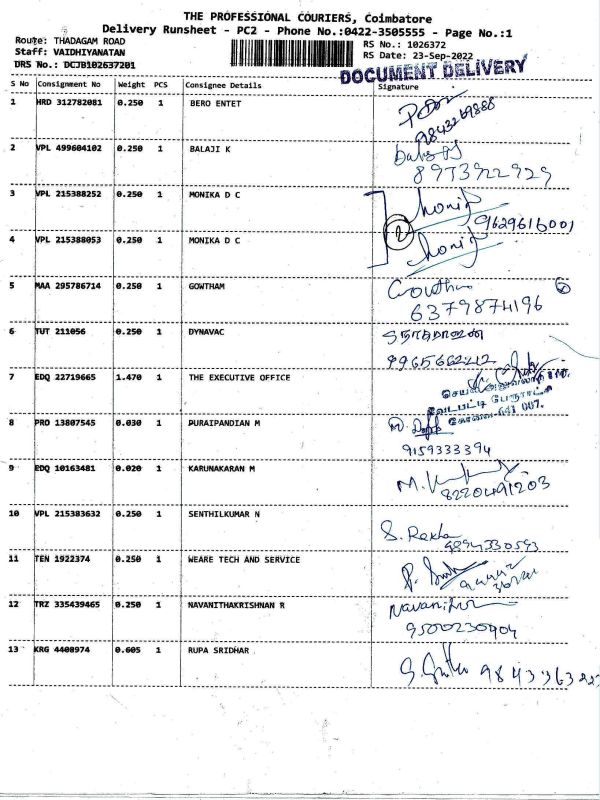 THE PROFESSIONAL COURIERS, Coimbatore
Delivery Runsheet - PC2 - Phone No.:0422-3505555 - Page No.:1
Route: THADAGAM ROAD
RS No.: 1026372
Staff: VAIDHIYANATAN
RS Date: 23-Sep-2022
DRS No.: DCJB102637201
DOCUMENT DELIVERY
S No Consignment No Weight PCS Consignee Details Signature
1 HRD 312782081 0.250 1 BERO ENTET
9843269888
2 VPL 499604102 0.250 1 BALAJI K
8973922929
3 VPL 215388252 0.250 1 MONIKA D C
9629616001
2
4 VPL 215388053 0.250 1 MONIKA D C
5 MAA 295786714 0.250 1 GOWTHAM
Gowtham
6379874196
6 TUT 211056 0.250 1 DYNAVAC
9965662212
7 EDQ 22719665 1.470 1 THE EXECUTIVE OFFICE
வேடபட்டி பேரூராட்சி
கோவை-641 007.
8 PRD 13807545 0.030 1 PURAIPANDIAN M
9159333394
9 EDQ 10163481 0.020 1 KARUNAKARAN M
8220491203
10 VPL 215383632 0.250 1 SENTHILKUMAR N
S. Rekha
9894330593
11 TEN 1922374 0.250 1 WEARE TECH AND SERVICE
12 TRZ 335439465 0.250 1 NAVANITHAKRISHNAN R
9500230404
13 KRG 4408974 0.605 1 RUPA SRIDHAR